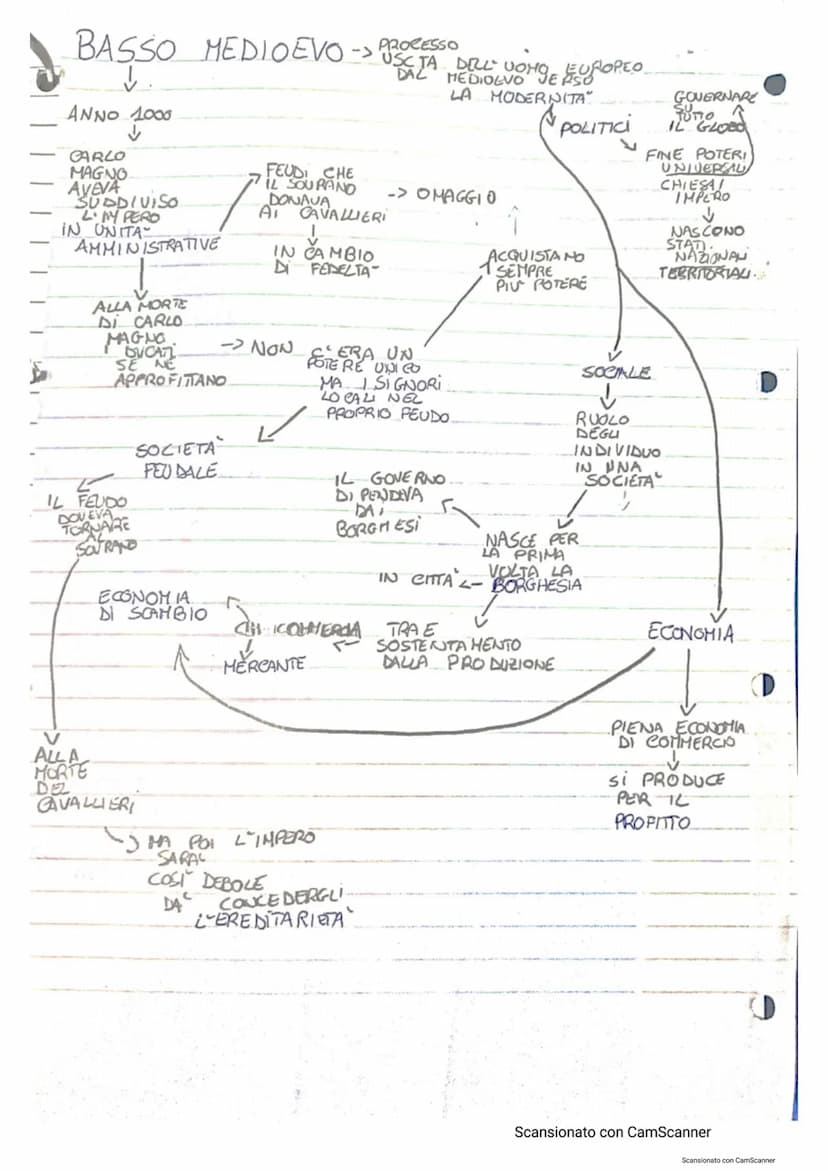 BASSO MEDIOEVO -> PROCESSO
USCITA DELL'UOMO EUROPEO
DAL MEDIOEVO VERSO
LA MODERNITA'
ANNO 1000
CARLO
MAGNO
AVEVA
SUDDIVISO
L'IMPERO
IN UNITA'
AMMINISTRATIVE
FEUDI CHE
IL SOVRANO
DONAVA
AI CAVALLIERI
-> OMAGGIO
IN CAMBIO
DI FEDELTA'
POLITICI
GOVERNARE
SU
TUTTO
IL GLOBO
FINE POTERI
UNIVERSALI
CHIESA/
IMPERO
NASCONO
STATI
NAZIONALI
TERRITORIALI.
ACQUISTANO
SEMPRE
PIU' POTERE
ALLA MORTE
DI CARLO
MAGNO
I DUCATI
SE NE
APPROFITTANO
-> NON C'ERA UN
POTERE UNICO
MA I SIGNORI
LOCALI NEL
PROPRIO FEUDO
SOCIALE
RUOLO
DEGLI
INDIVIDUO
IN UNA
SOCIETA'
SOCIETA'
FEUDALE
IL FEUDO
DOVEVA
TORNARE
AL
SOVRANO
IL GOVERNO
DIPENDEVA
DAI
BORGHESI
NASCE PER
LA PRIMA
VOLTA LA
IN CITTA' <- BORGHESIA
ECONOMIA
DI SCAMBIO
CHI COMMERCIA
MERCANTE
TRAE
SOSTENTAMENTO
DALLA PRODUZIONE
ECONOMIA
PIENA ECONOMIA
DI COMMERCIO
SI PRODUCE
PER IL
PROFITTO
ALLA
MORTE
DEL
CAVALLIERI
MA POI L'IMPERO
SARA'
COSI' DEBOLE
DA' CONCEDERGLI
L'EREDITARIETA'
Scansionato con CamScanner
Scansionato con CamScanner